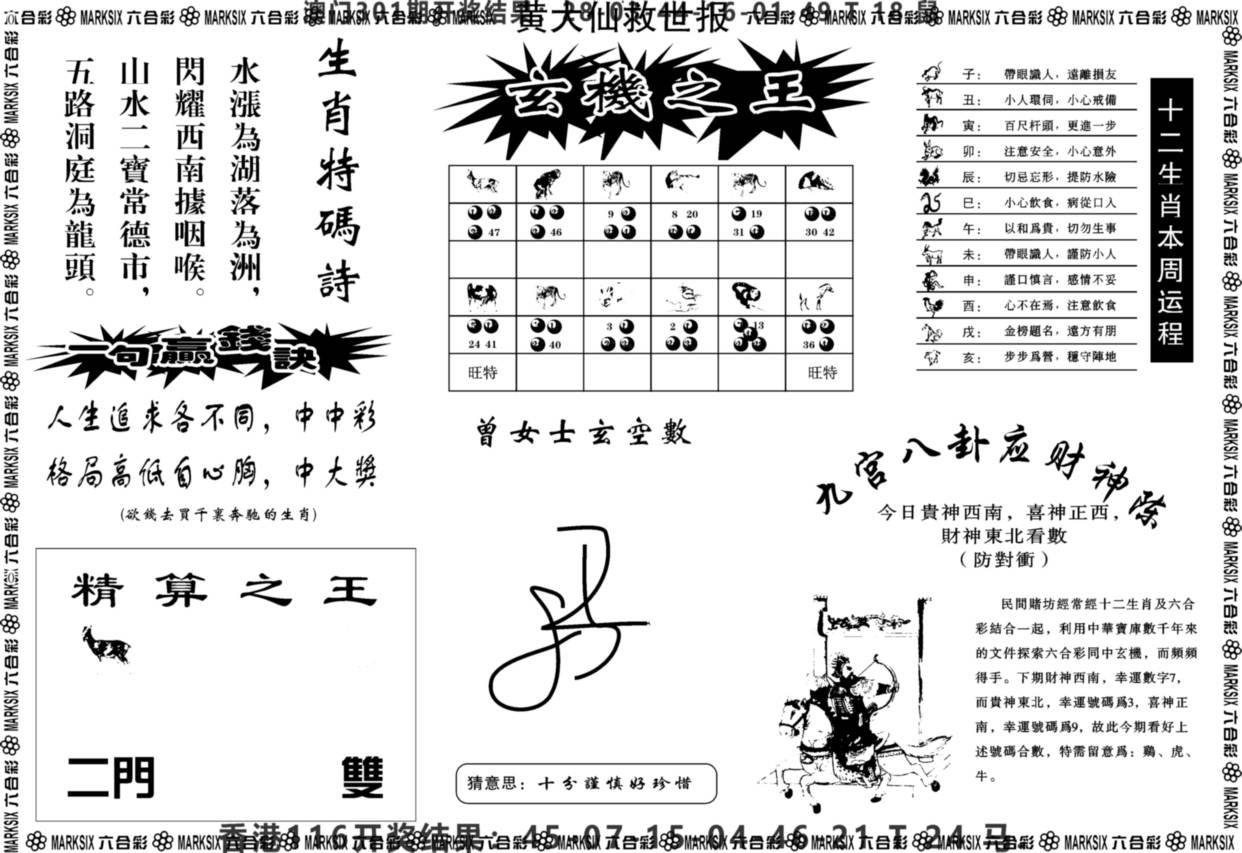 澳门301期开奖结果
黄大仙救世报
MARKSIX 六合彩
生肖特碼詩
水漲為湖落為洲，
閃耀西南據咽喉。
山水二寶常德市，
五路洞庭為龍頭。
一句贏錢訣
人生追求各不同，中中彩
格局高低自心胸，中大獎
(欲錢去買千裏奔馳的生肖)
精算之王
二門 雙
玄機之王
47 46 9 8 20 19 31 30 42
24 41 40 3 2 13 36
旺特 旺特
曾女士玄空數
猜意思：十分謹慎好珍惜
十二生肖本周运程
子： 帶眼識人，遠離損友
丑： 小人環伺，小心戒備
寅： 百尺杆頭，更進一步
卯： 注意安全，小心意外
辰： 切忌忘形，提防水險
巳： 小心飲食，病從口入
午： 以和爲貴，切勿生事
未： 帶眼識人，謹防小人
申： 謹口慎言，感情不妥
酉： 心不在焉，注意飲食
戌： 金榜題名，遠方有朋
亥： 步步爲營，穩守陣地
宮八卦应财神
今日貴神西南，喜神正西，
財神東北看數
(防對衝)
民間賭坊經常經十二生肖及六合
彩結合一起，利用中華寶庫數千年來
的文件探索六合彩同中玄機，而頻頻
得手。下期財神西南，幸運數字7，
而貴神東北，幸運號碼爲3，喜神正
南，幸運號碼爲9，故此今期看好上
述號碼合數，特需留意爲：鷄、虎、
牛。
香港116开奖结果：45 07 15 04 46 21 T 24 马